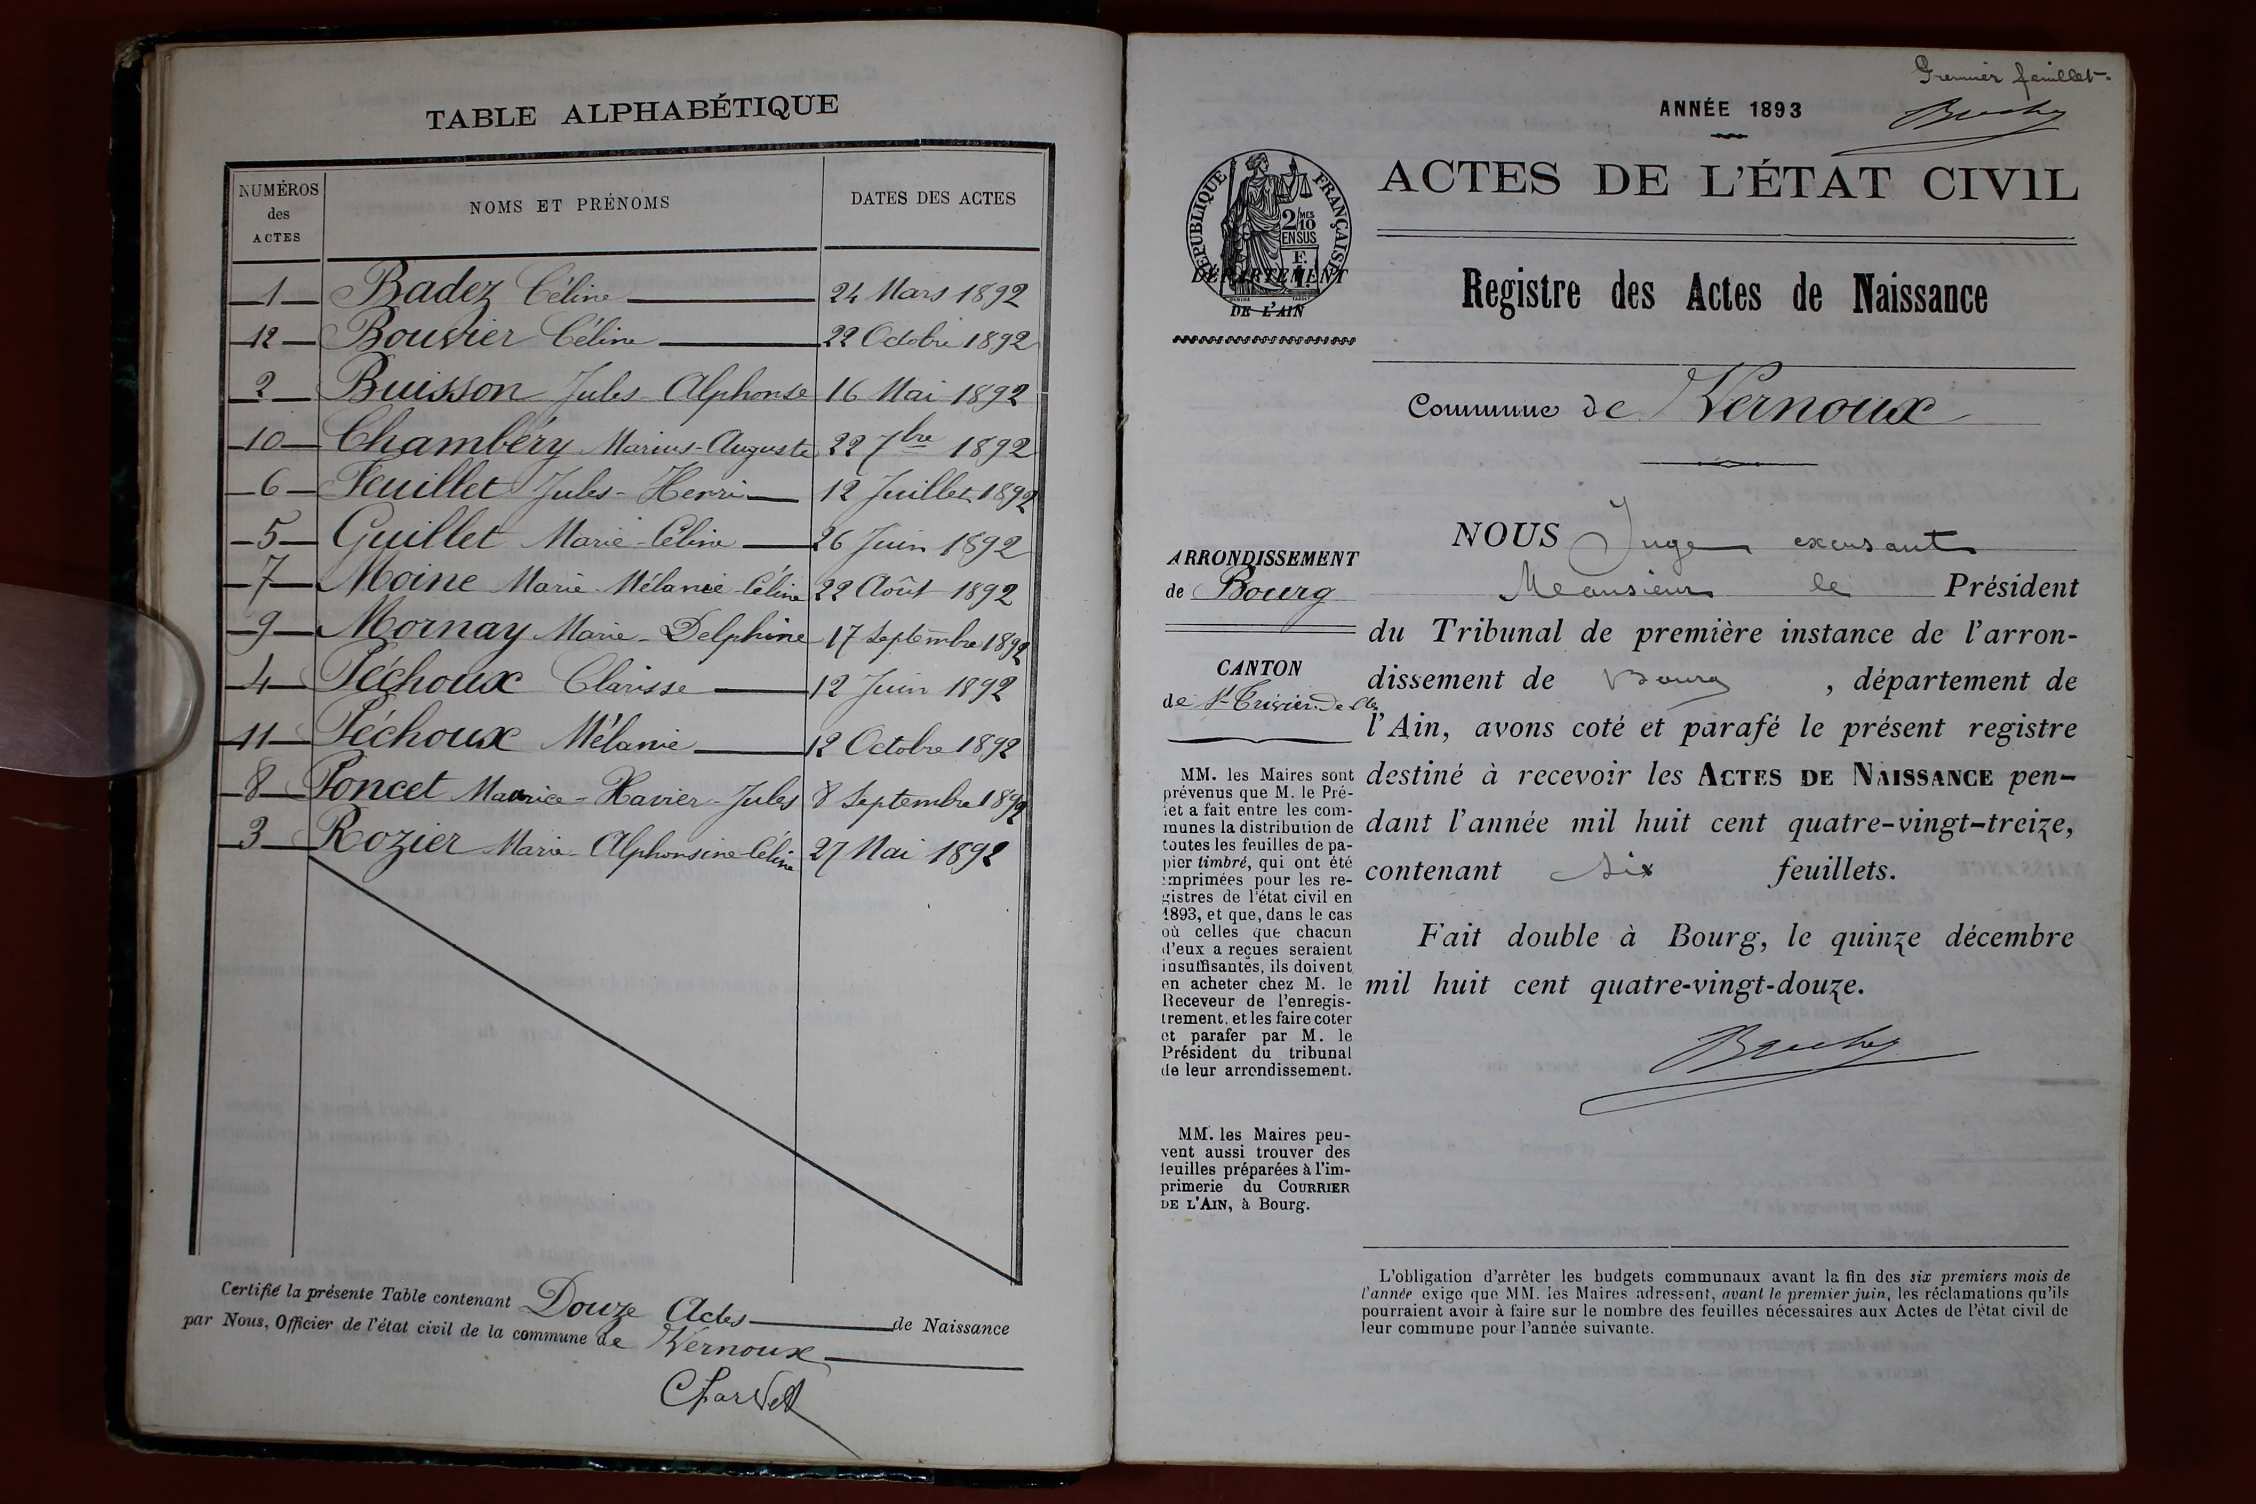 TABLE ALPHABÉTIQUE
NUMÉROS des ACTES NOMS ET PRÉNOMS DATES DES ACTES
1 Badez Céline 24 Mars 1892
12 Bouvier Céline 22 Octobre 1892
2 Buisson Jules-Alphonse 16 Mai 1892
10 Chambéry Marius-Auguste 22 7bre 1892
6 Feuillet Jules-Henri 12 Juillet 1892
5 Guillet Marie-Céline 26 Juin 1892
7 Moine Marie-Mélanie-Céline 22 Août 1892
9 Mornay Marie-Delphine 17 Septembre 1892
4 Péchoux Clarisse 12 Juin 1892
11 Péchoux Mélanie 12 Octobre 1892
8 Poncet Maurice-Xavier-Jules 8 Septembre 1892
3 Rozier Marie-Alphonsine-Céline 27 Mai 1892
Certifié la présente Table contenant Douze Actes de Naissance
par Nous, Officier de l'état civil de la commune de Vernoux
Charvet
Premier feuillet.
ANNÉE 1893
RÉPUBLIQUE FRANÇAISE
2/10MES
EN SUS
DÉPARTEMENT
DE L'AIN
ACTES DE L'ÉTAT CIVIL
Registre des Actes de Naissance
Commune de Vernoux
ARRONDISSEMENT
de Bourg
CANTON
de St-Trivier-de-
MM. les Maires sont
prévenus que M. le Pré-
fet a fait entre les com-
munes la distribution de
toutes les feuilles de pa-
pier timbré, qui ont été
imprimées pour les re-
gistres de l'état civil en
1893, et que, dans le cas
où celles que chacun
d'eux a reçues seraient
insuffisantes, ils doivent
en acheter chez M. le
Receveur de l'enregis-
trement, et les faire coter
et parafer par M. le
Président du tribunal
de leur arrondissement.
MM. les Maires peu-
vent aussi trouver des
feuilles préparées à l'im-
primerie du COURRIER
DE L'AIN, à Bourg.
NOUS Juge excusant
Monsieur le Président
du Tribunal de première instance de l'arron-
dissement de Bourg, département de
l'Ain, avons coté et parafé le présent registre
destiné à recevoir les ACTES DE NAISSANCE pen-
dant l'année mil huit cent quatre-vingt-treize,
contenant six feuillets.
Fait double à Bourg, le quinze décembre
mil huit cent quatre-vingt-douze.
L'obligation d'arrêter les budgets communaux avant la fin des six premiers mois de
l'année exige que MM. les Maires adressent, avant le premier juin, les réclamations qu'ils
pourraient avoir à faire sur le nombre des feuilles nécessaires aux Actes de l'état civil de
leur commune pour l'année suivante.